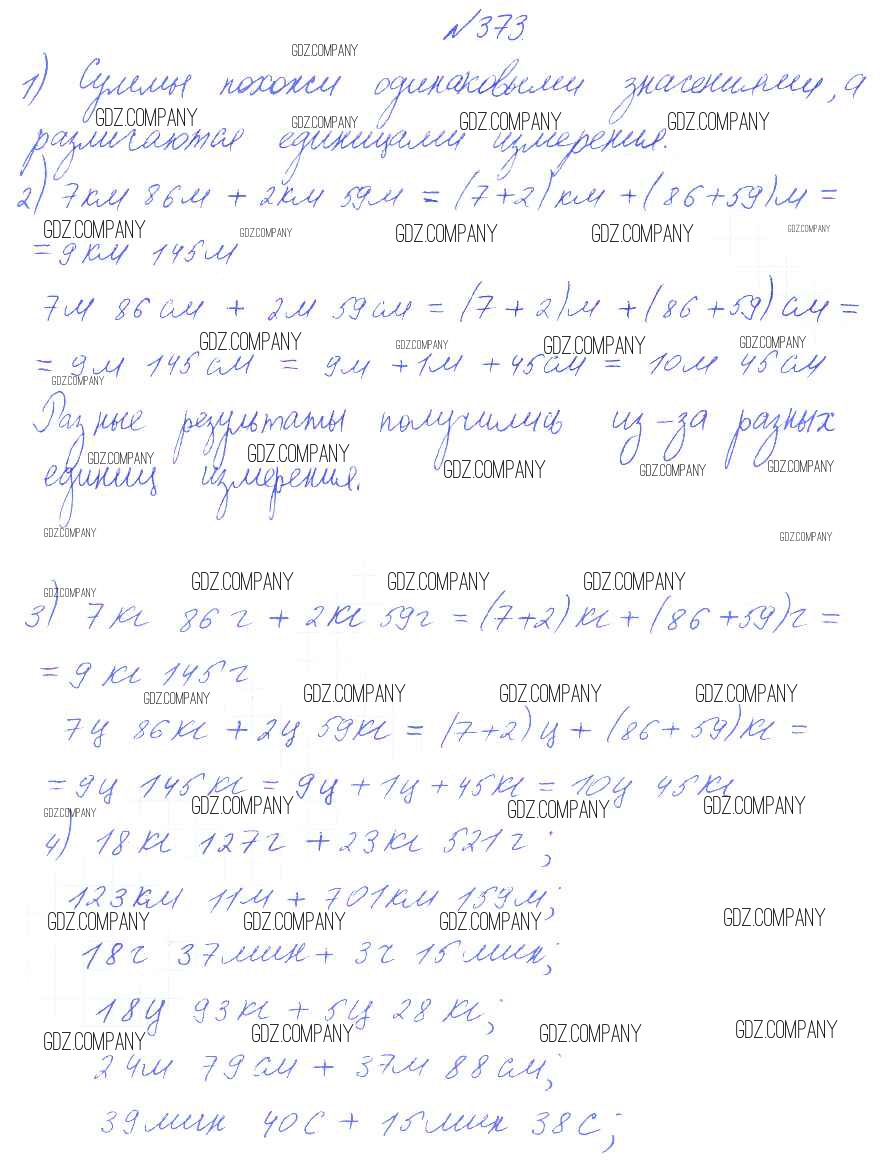 №373.
GDZ.COMPANY
1) Суммы похожи одинаковыми значениями, а
GDZ.COMPANY GDZ.COMPANY GDZ.COMPANY GDZ.COMPANY
различаются единицами измерения.
2) 7км 86м + 2км 59м = (7+2)км + (86+59)м =
GDZ.COMPANY GDZ.COMPANY GDZ.COMPANY GDZ.COMPANY GDZ.COMPANY
= 9км 145м
7м 86см + 2м 59см = (7+2)м + (86+59)см =
GDZ.COMPANY GDZ.COMPANY GDZ.COMPANY GDZ.COMPANY
= 9м 145см = 9м + 1м + 45см = 10м 45см
GDZ.COMPANY
Разные результаты получились из-за разных
GDZ.COMPANY GDZ.COMPANY GDZ.COMPANY GDZ.COMPANY GDZ.COMPANY
единиц измерения.
GDZ.COMPANY GDZ.COMPANY
GDZ.COMPANY GDZ.COMPANY GDZ.COMPANY GDZ.COMPANY
3) 7кг 86г + 2кг 59г = (7+2)кг + (86+59)г =
= 9кг 145г
GDZ.COMPANY GDZ.COMPANY GDZ.COMPANY GDZ.COMPANY
7ц 86кг + 2ц 59кг = (7+2)ц + (86+59)кг =
= 9ц 145кг = 9ц + 1ц + 45кг = 10ц 45кг
GDZ.COMPANY GDZ.COMPANY GDZ.COMPANY GDZ.COMPANY
4) 18кг 127г + 23кг 521г;
123км 11м + 701км 159м;
GDZ.COMPANY GDZ.COMPANY GDZ.COMPANY GDZ.COMPANY
18ч 37мин + 3ч 15мин;
18ц 93кг + 5ц 28кг;
GDZ.COMPANY GDZ.COMPANY GDZ.COMPANY GDZ.COMPANY
24м 79см + 37м 88см;
39мин 40с + 15мин 38с;